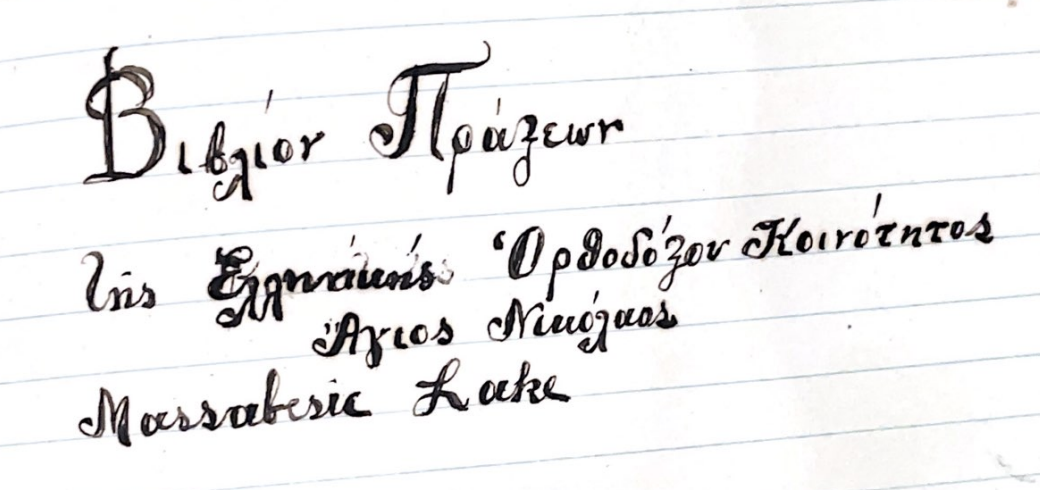 Βιβλίον Πράξεων
Της Ἑλληνικής Ὀρθοδόξου Κοινότητος
Ἅγιος Νικόλαος
Massabesic Lake